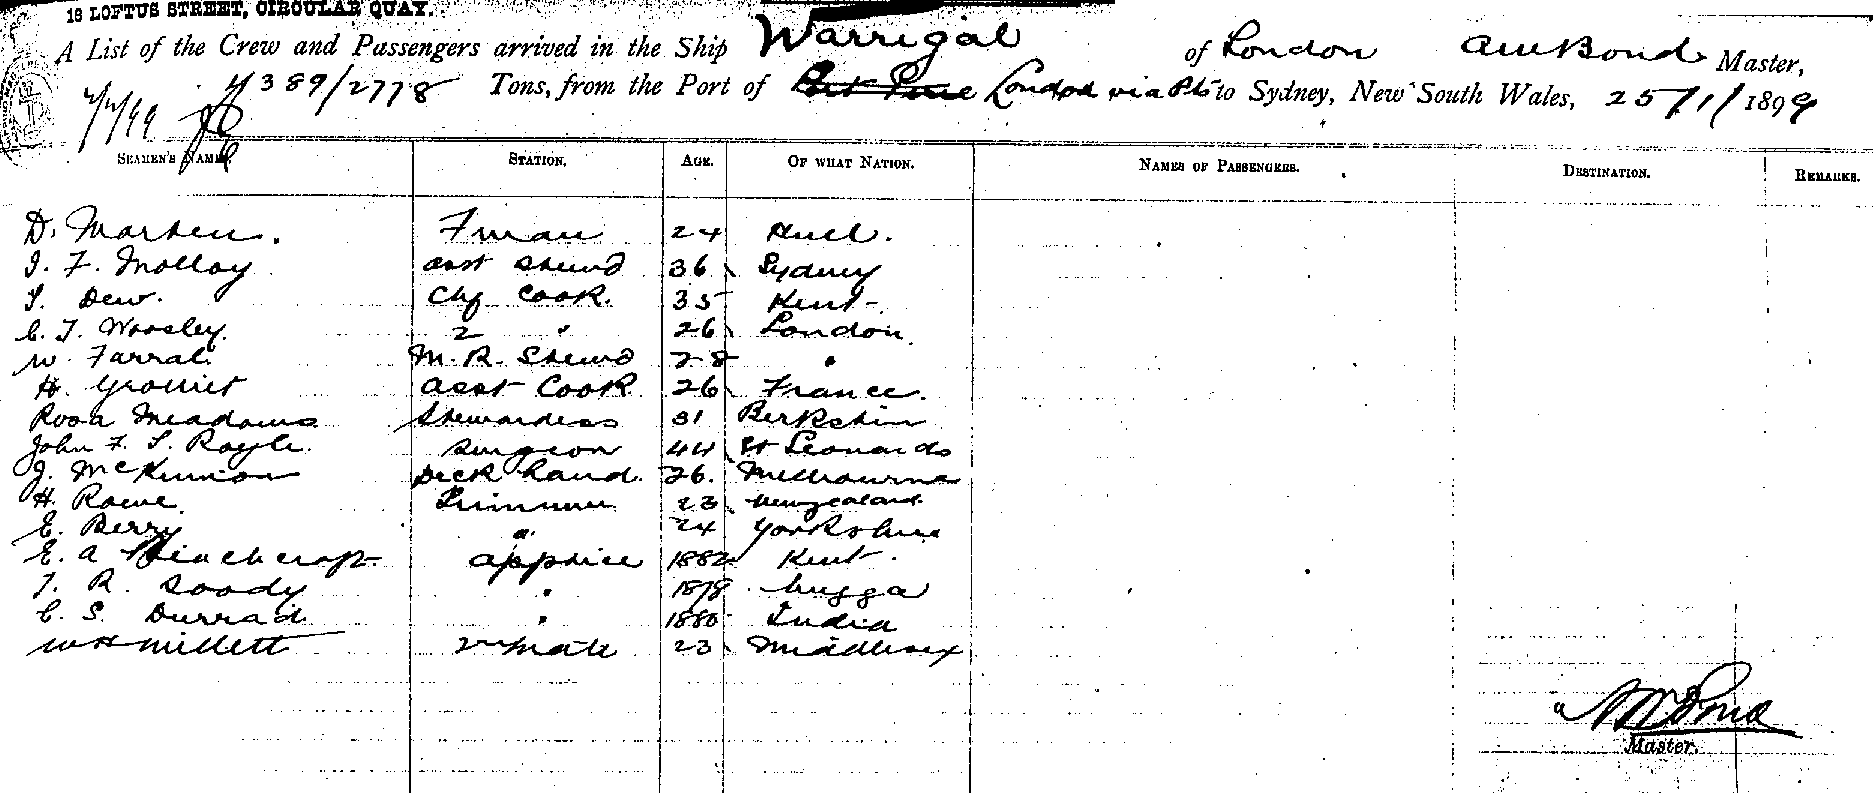 18 LOFTUS STREET, CIRCULAR QUAY.
A List of the Crew and Passengers arrived in the Ship Warrigal of London AM Bond Master,
4389/2778 Tons, from the Port of London via Pts to Sydney, New South Wales, 25/1/1899
SEAMEN'S NAMES STATION. AGE. OF WHAT NATION. NAMES OF PASSENGERS. DESTINATION. REMARKS.
D. Marsen. Fman 24 Hull.
J. F. Molloy asst Stewd 36 Sydney
S. Dew. Chf Cook. 35 Kent
C. T. Woosley. 2 " 26 London
W. Farral. M. R. Stewd 28 "
H. asst Cook 26 France.
Rosa Meadows Stewardess 31 Berkshire
John F. S. Royle. Surgeon 44 St Leonards
J. McKinnon Deck hand. 26. Melbourne
H. Rowe. Trimmer 23 New Zealand
E. Berry " 24 Yorkshire
E. A. appttice 1882 Kent.
T. R. Soody " 1878
C. S. Durrad " 1880 India
W H Millett 2nd Mate 23 Middlesex
AM Bond
Master.